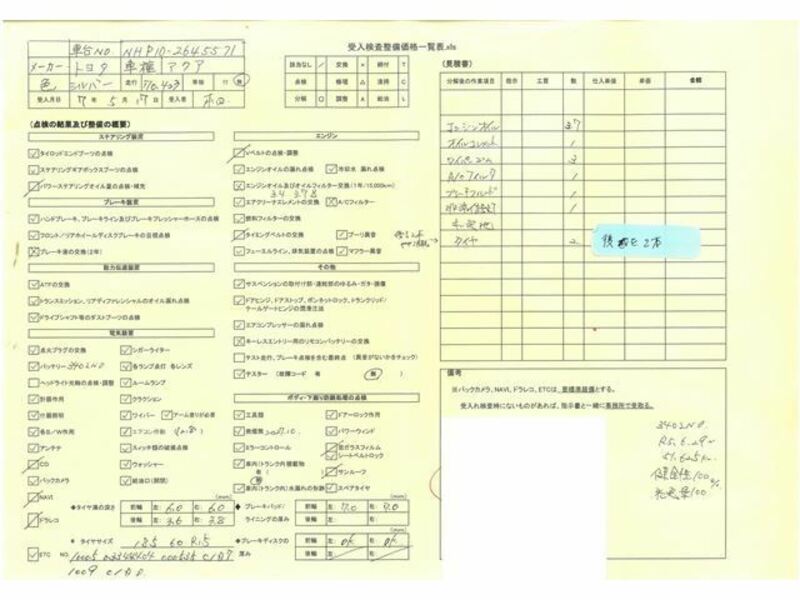 受入検査整備価格一覧表.xls
車台NO. NHP10-2645571
メーカー トヨタ 車種 アクア
色 シルバー 走行 70,403 車検 付 無
受入月日 7年 5月 17日 受入者 本田
該当なし / 交換 × 締付 T
点検 レ 修理 △ 清掃 C
分解 O 調整 A 給油 L
(点検の結果及び整備の概要)
ステアリング装置
タイロッドエンドブーツの点検
ステアリングギアボックスブーツの点検
パワーステアリングオイル量の点検・補充
ブレーキ装置
ハンドブレーキ、ブレーキライン及びブレーキプレッシャーホースの点検
フロント/リアホイールディスクブレーキの目視点検
ブレーキ液の交換(2年)
動力伝達装置
ATFの交換
トランスミッション、リアディファレンシャルのオイル漏れ点検
ドライブシャフト等のダストブーツの点検
電気装置
点火プラグの交換 シガーライター
バッテリー 各ランプ点灯 各レンズ
ヘッドライト光軸の点検・調整 ルームランプ
計器作用 クラクション
付属照明 ワイパー アーム塗りが必要
各S/W作用 エアコン作動
アンテナ スイッチ類の破損点検
CD ウォッシャー
バックカメラ 給油口(開閉)
NAVI
ドラレコ
(mm)
◆タイヤ溝の深さ 前輪 左: 6.0 右: 6.0
後輪 左: 3.6 右: 3.8
◆タイヤサイズ 185 60 R15
ETC NO.
エンジン
Vベルトの点検・調整
エンジンオイルの漏れ点検 冷却水 漏れ点検
エンジンオイル及びオイルフィルター交換(1年/15,000km)
エアクリーナエレメントの交換 A/Cフィルター
燃料フィルターの交換
タイミングベルトの交換 プーリ異音
フューエルライン、排気装置の点検 マフラー異音
その他
サスペンションの取付け部・連結部のゆるみ・ガタ・損傷
ドアヒンジ、ドアストップ、ボンネットロック、トランクリッド/テールゲートヒンジの潤滑注油
エアコンプレッサーの漏れ点検
キーレスエントリー用のリモコンバッテリーの交換
テスト走行、ブレーキ点検を含む最終点 (異音がないかをチェック)
テスター (故障コード 有 無)
ボディ・下廻り防錆処理の点検
工具類 ドアーロック作用
発煙筒 2027.10. パワーウインド
ミラーコントロール 窓ガラスフィルム
シートベルトロック
車内(トランク内)積載物 サンルーフ
有( )
無
車内(トランク内)水漏れの有跡 スペアタイヤ
(mm)
◆ブレーキパッド/ライニングの厚み 前輪 左: 7.0 右: 7.0
後輪 左: 右:
◆ブレーキディスクの厚み 前輪 左: OK 右: OK
後輪 左: 右:
(見積書)
分解後の作業項目 指示 工賃 数 仕入単価 単価 金額
エンジンオイル 3.7
オイルエレメント 1
ワイパーゴム 3
A/Cフィルタ 1
ブレーキフルード 1
タイヤ 2
備考
※バックカメラ、NAVI、ドラレコ、ETCは、標準装備とする。
受入れ検査時にないものがあれば、指示書と一緒に事務所で受取る。
R5.6.29
51,625km
健全性100%
充電量100